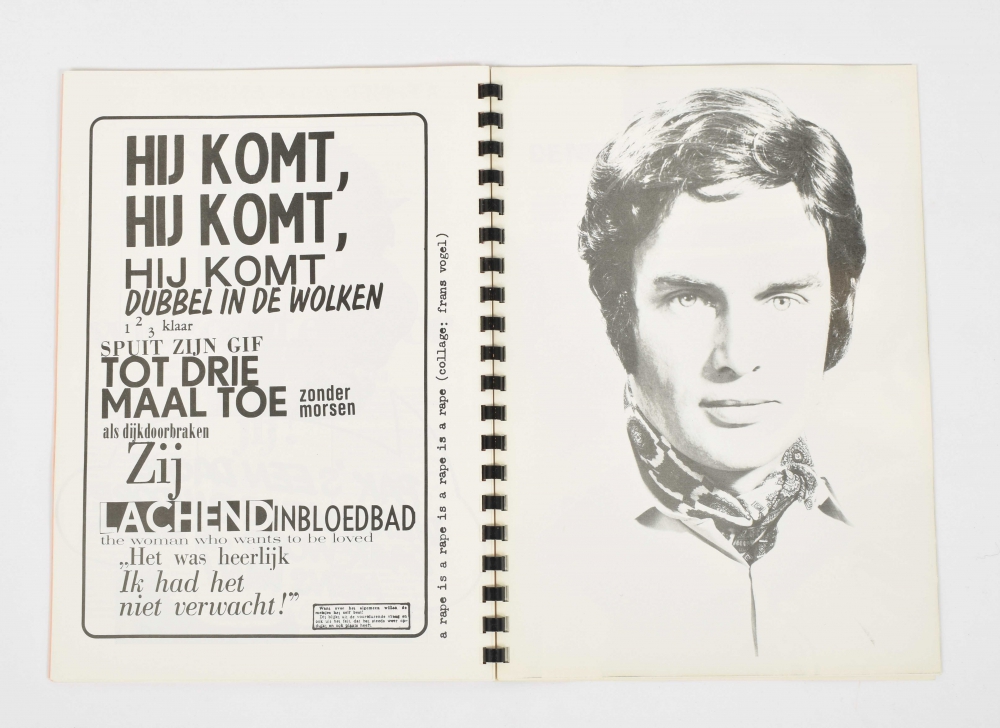 HIJ KOMT,
HIJ KOMT,
HIJ KOMT
DUBBEL IN DE WOLKEN
1 2 3 klaar
SPUIT ZIJN GIF
TOT DRIE
MAAL TOE zonder
morsen
als dijkdoorbraken
Zij
LACHEND INBLOEDBAD
the woman who wants to be loved
„Het was heerlijk
Ik had het
niet verwacht!”
Want over het algemeen willen de
mensen het zelf heel
a rape is a rape is a rape is a rape (collage: frans vogel)